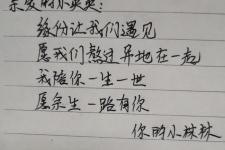 亲爱的小爽爽：
缘份让我们遇见
愿我们熬过异地在一起
我陪你一生一世
愿余生一路有你
你的小妹妹